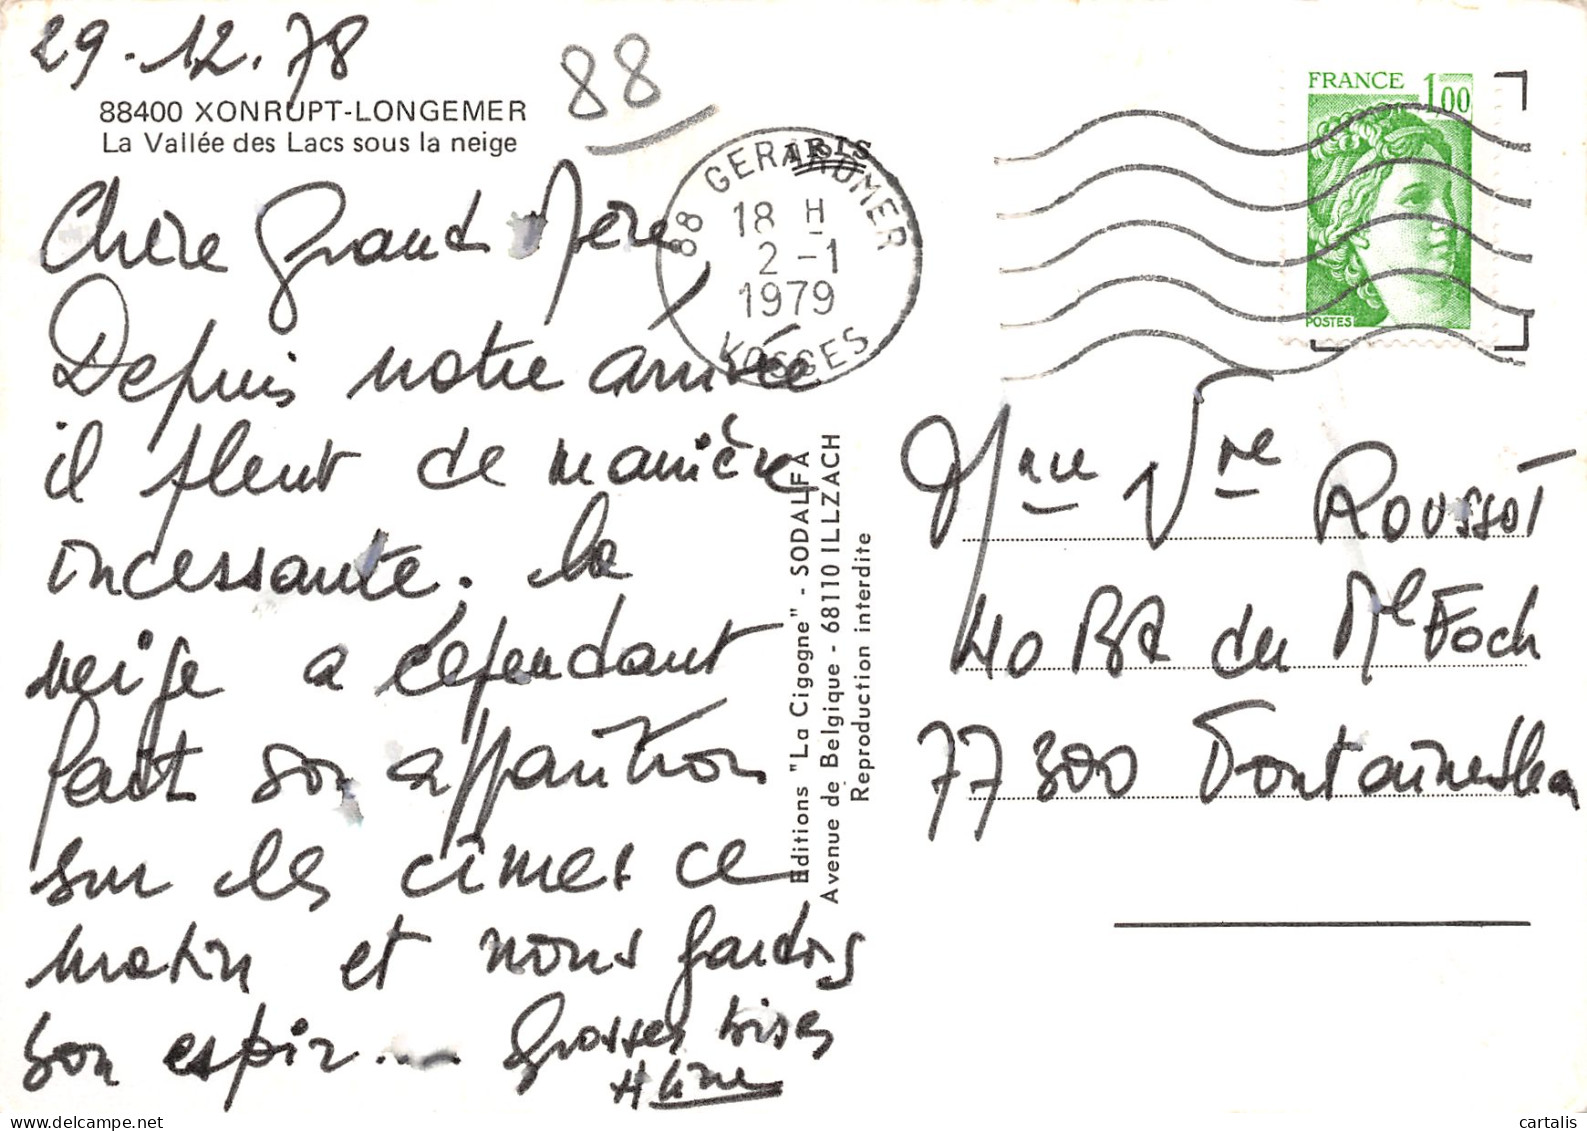 29.12.78
88
88400 XONRUPT-LONGEMER
La Vallée des Lacs sous la neige
Chère Grand Mère,
Depuis notre arrivée
il pleut de manière
incessante. La
neige a cependant
fait son apparition
sur les cîmes ce
matin et nous gardons
bon espoir.... Grosses bises
88 GERARDMER
18 H
2-1
1979
VOSGES
FRANCE 1,00
POSTES
Editions "La Cigogne" - SODALFA
Avenue de Belgique - 68110 ILLZACH
Reproduction interdite
Mme Vve ROUSSOT
40 Bd du Mal Foch
77300 Fontainebleau
cartalis